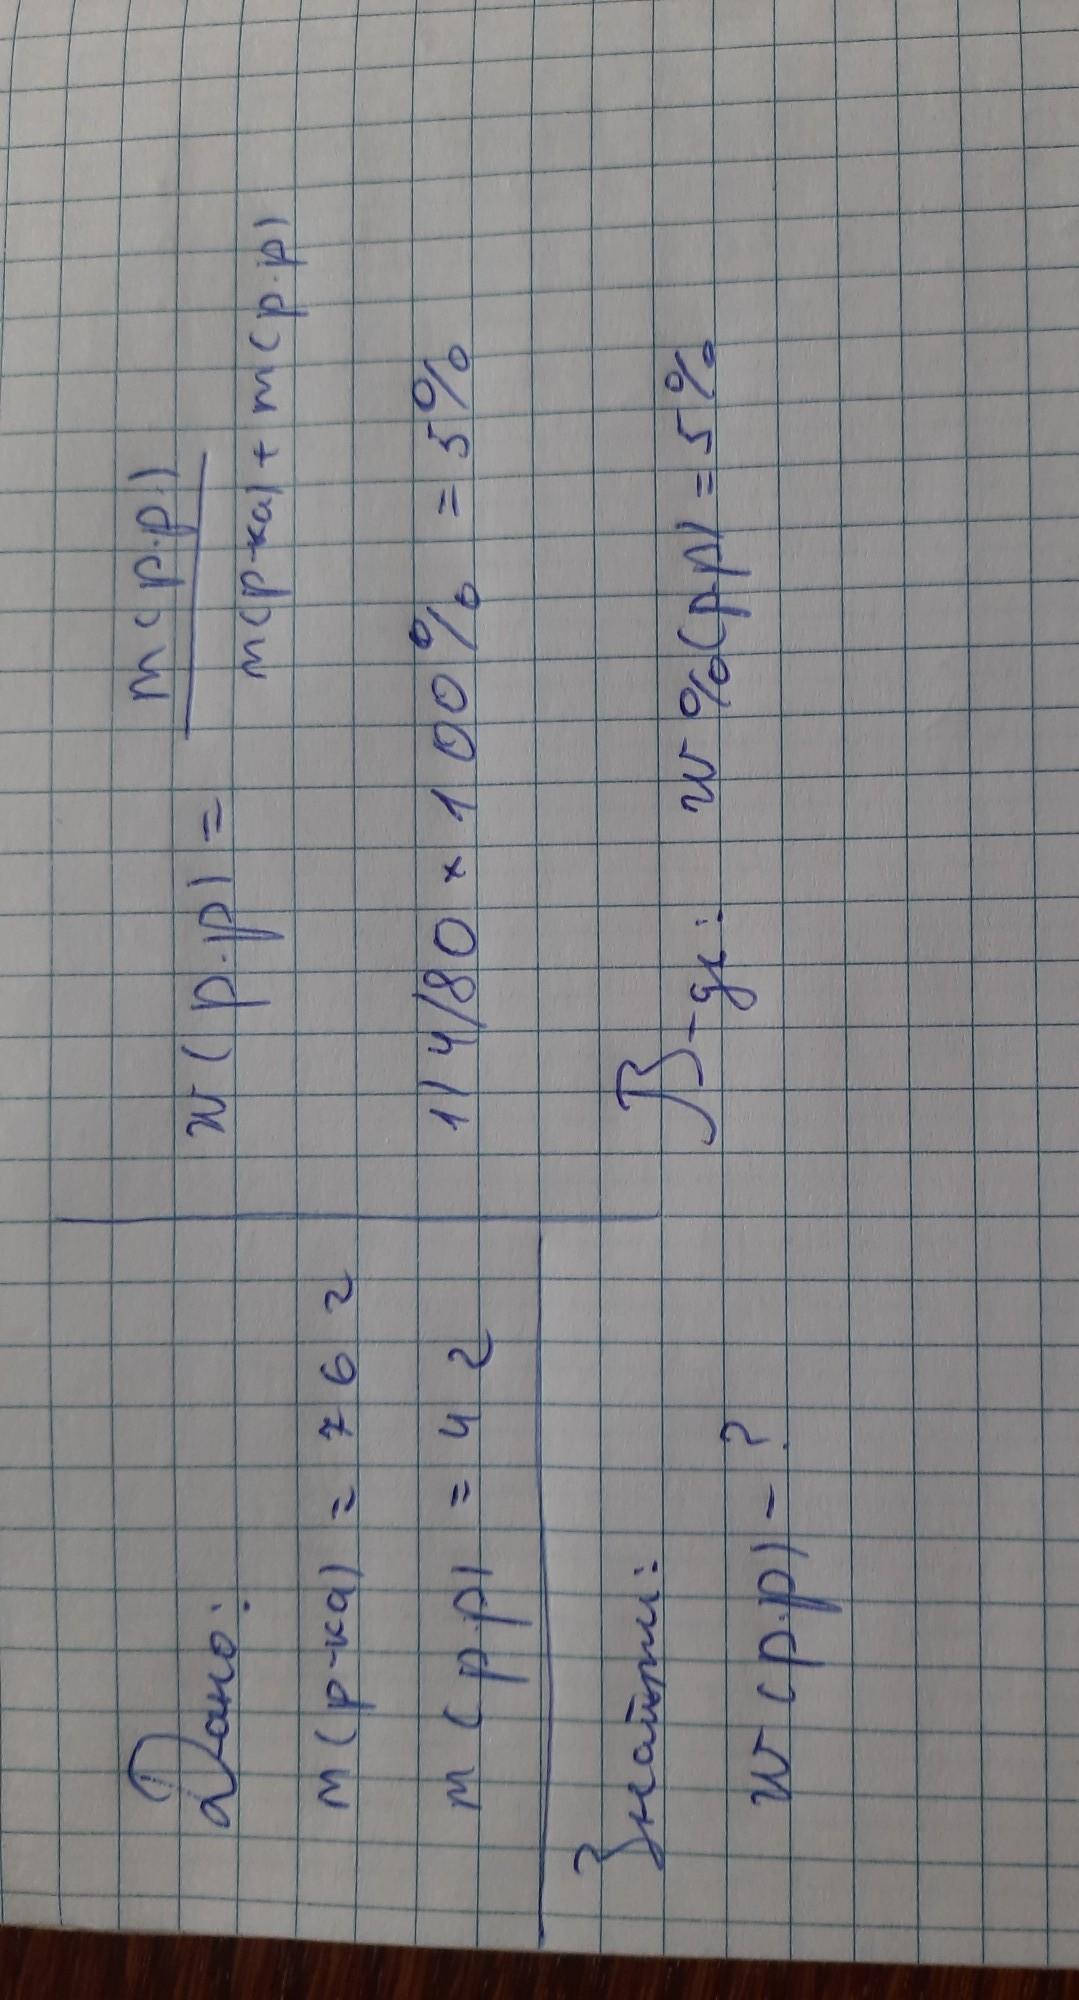 Дано:
m(р-ка) = 76 г
m(р.р) = 4 г
Знайти:
w(р.р) - ?
w(р.р) = m(р.р) / m(р-ка) + m(р.р)
1) 4/80 × 100% = 5%
В-дь: w%(р.р) = 5%